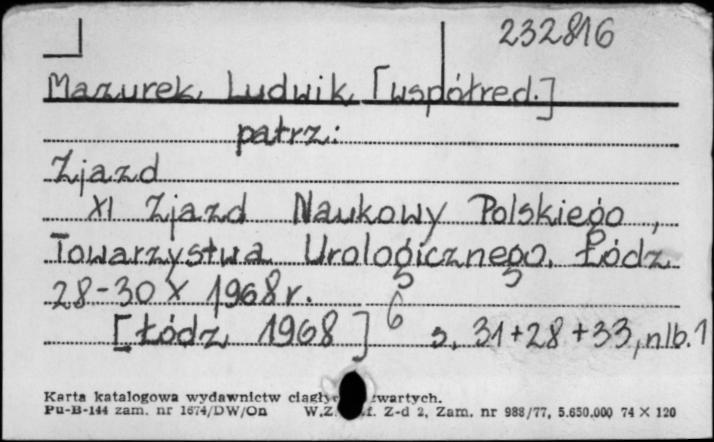 232816
Mazurek, Ludwik [współred.]
patrz:
Zjazd
XI Zjazd Naukowy Polskiego,
Towarzystwa Urologicznego. Łódz
28-30 X 1968 r.
[Łódz 1968] 6 s. 31+28+33, nlb. 1
Karta katalogowa wydawnictw
Pu-B-144 zam. nr 1674/DW/On W.Z. Z-d 2, Zam. nr 988/77, 5.650.000 74 X 120